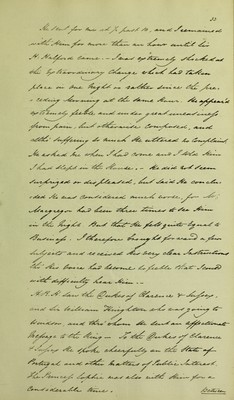 33
He sent for me at ½ past 10, and I remained
with Him for more than an hour until Sir
H. Halford came. - I was extremely shocked at
the Extraordinary Change which had taken
place in one Night or rather since the pre-
-ceding Morning at the same Hour. He appear'd
extremely feeble and under great uneasiness
from pain, but otherwise composed, and
altho' suffering so much He uttered no complaint.
He asked me when I had come and I told Him
I had slept in the House. - He did not seem
surprized or displeased, but said He conclu-
-ded He was considered much worse, for Mr.
Macgregor had been three times to see Him
in the Night. But that He felt quite Equal to
Business. I therefore brought forward a few
Subjects and received His very clear Instructions
tho' His Voice had become so feeble that I could
with difficulty hear Him. -
H.R.H. saw the Dukes of Clarence & Sussex,
and Sir William Knighton who was going to
Windsor, and thro' whom He sent an affectionate
Message to The King - To the Dukes of Clarence
& Sussex He spoke cheerfully on the State of
Portugal and other matters of Public Interest.
The Princess Sophia was also with Him for a
considerable time.